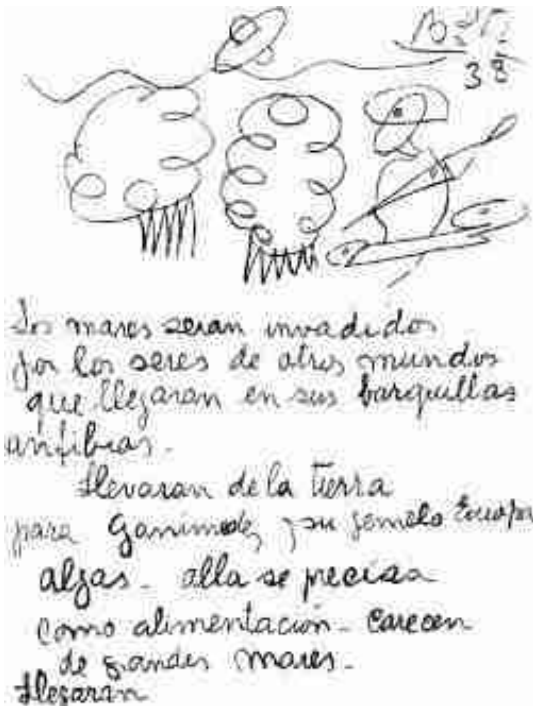 38
Los mares seran invadidos
por los seres de otros mundos
que llegaran en sus barquillas
anfibias.
Llevaran de la tierra
para Ganimedes y su gemelo Europa
algas. alla se precisa
como alimentación. carecen
de grandes mares.
Llegaran